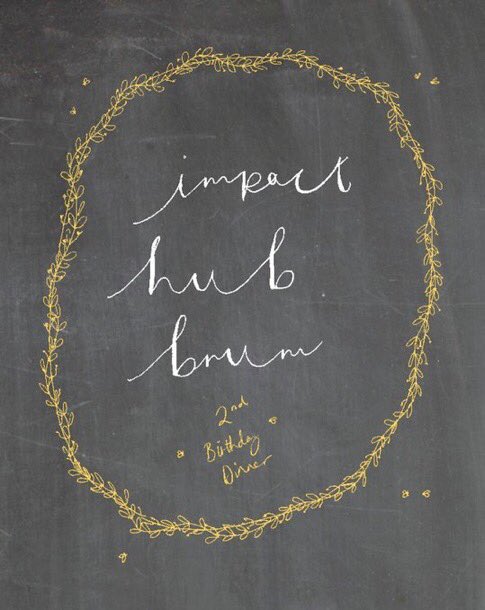 impact
hub
brum
2nd
Birthday
Dinner